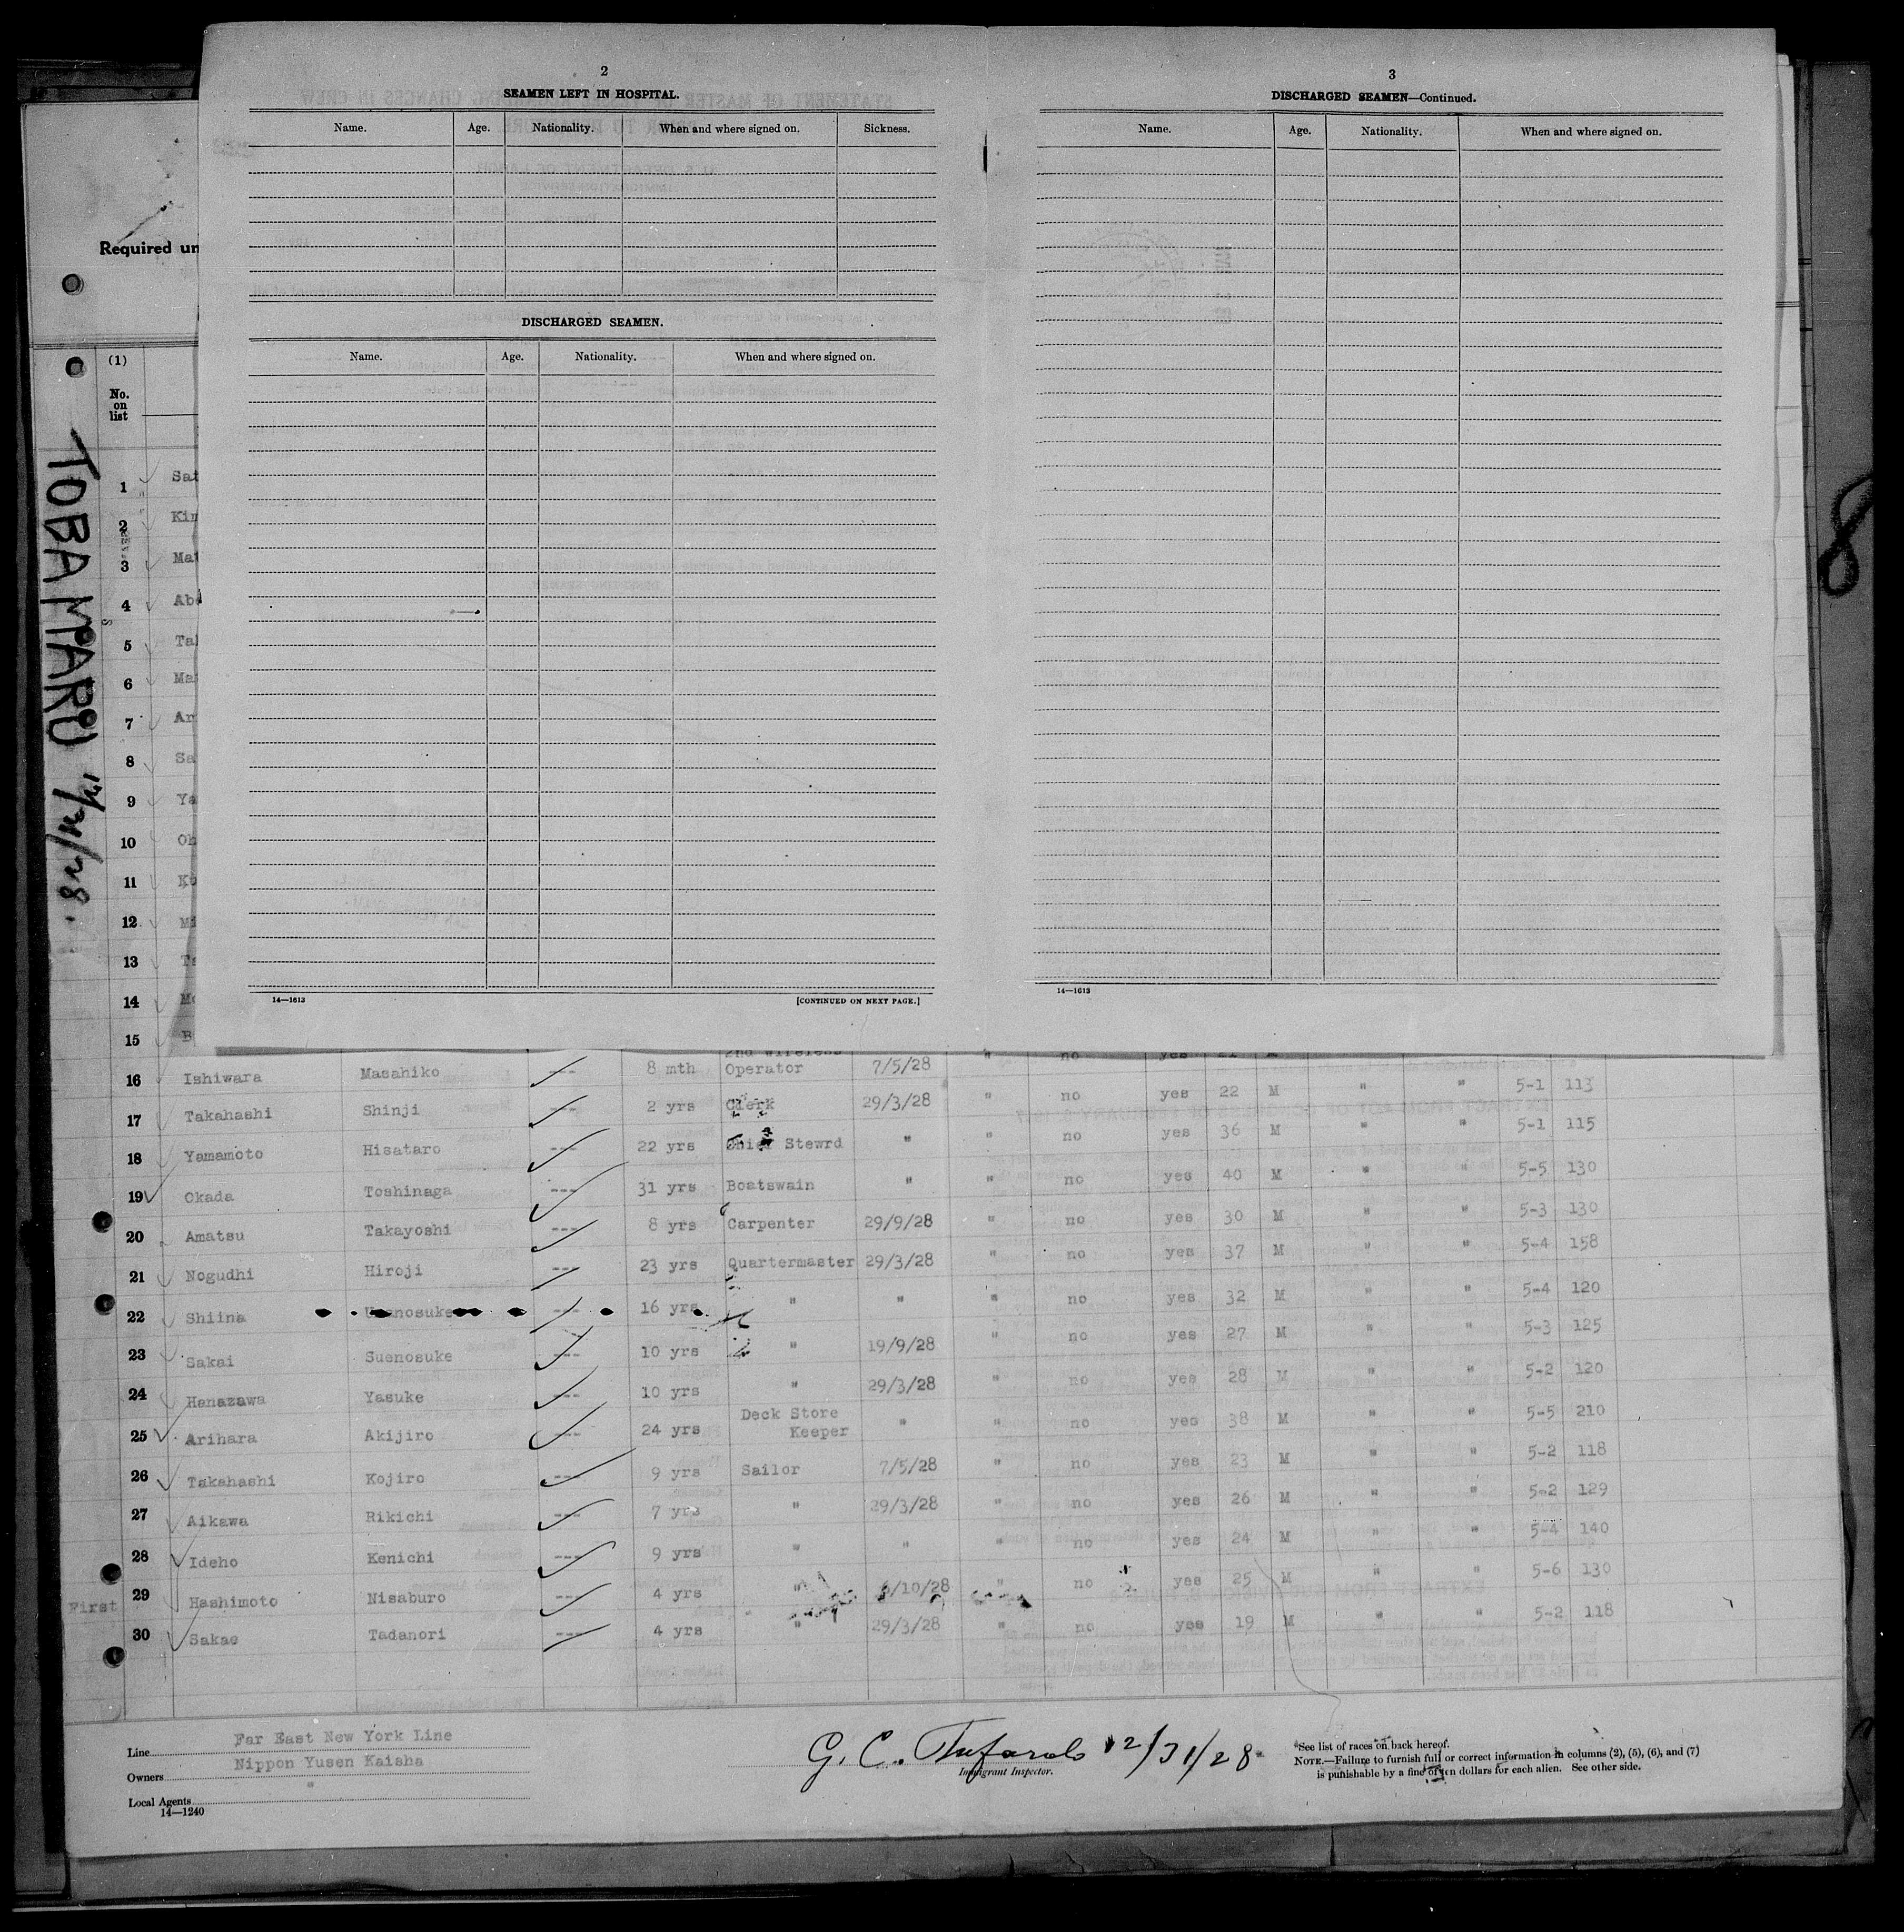 2
SEAMEN LEFT IN HOSPITAL.
Name. Age. Nationality. When and where signed on. Sickness.
DISCHARGED SEAMEN.
Name. Age. Nationality. When and where signed on.
14—1613 [CONTINUED ON NEXT PAGE.]
3
DISCHARGED SEAMEN—Continued.
Name. Age. Nationality. When and where signed on.
14—1613
Required un
(1)
No. on list
TOBA MARU
8
1 Sat
2 Kim
3 Mat
4 Abe
5 Tak
6 Mat
7 Ar
8 Sa
9 Ya
10 Oh
11 Ku
12 Mi
13 Ta
14 Mo
15 B 2nd Wireless " no yes 21 M
16 Ishiwara Masahiko --- 8 mth Operator 7/5/28 " no yes 22 M " " 5-1 113
17 Takahashi Shinji --- 2 yrs Clerk 29/3/28 " no yes 36 M " " 5-1 115
18 Yamamoto Hisataro --- 22 yrs Chief Stewrd " " no yes 40 M " " 5-5 130
19 Okada Toshinaga --- 31 yrs Boatswain " " no yes 30 M " " 5-3 130
20 Amatsu Takayoshi --- 8 yrs Carpenter 29/9/28 " no yes 37 M " " 5-4 158
21 Nogudhi Hiroji --- 23 yrs Quartermaster 29/3/28 " no yes 32 M " " 5-4 120
22 Shiina --- 16 yrs " " " no yes 27 M " " 5-3 125
23 Sakai Suenosuke --- 10 yrs " 19/9/28 " no yes 28 M " " 5-2 120
24 Hanazawa Yasuke --- 10 yrs " 29/3/28 " no yes 38 M " " 5-5 210
25 Arihara Akijiro --- 24 yrs Deck Store Keeper " " no yes 23 M " " 5-2 118
26 Takahashi Kojiro --- 9 yrs Sailor 7/5/28 " no yes 26 M " " 5-2 129
27 Aikawa Rikichi --- 7 yrs " 29/3/28 " no yes 24 M " " 5-4 140
28 Ideho Kenichi --- 9 yrs " " " no yes 25 M " " 5-6 130
29 Hashimoto Nisaburo --- 4 yrs " /10/28 " no yes 19 M " " 5-2 118
First
30 Sakae Tadanori --- 4 yrs " 29/3/28
Line Far East New York Line
Owners Nippon Yusen Kaisha
Local Agents "
14—1240
G. C. 12/31/28
Immigrant Inspector.
*See list of races on back hereof.
NOTE.—Failure to furnish full or correct information in columns (2), (5), (6), and (7)
is punishable by a fine of ten dollars for each alien. See other side.